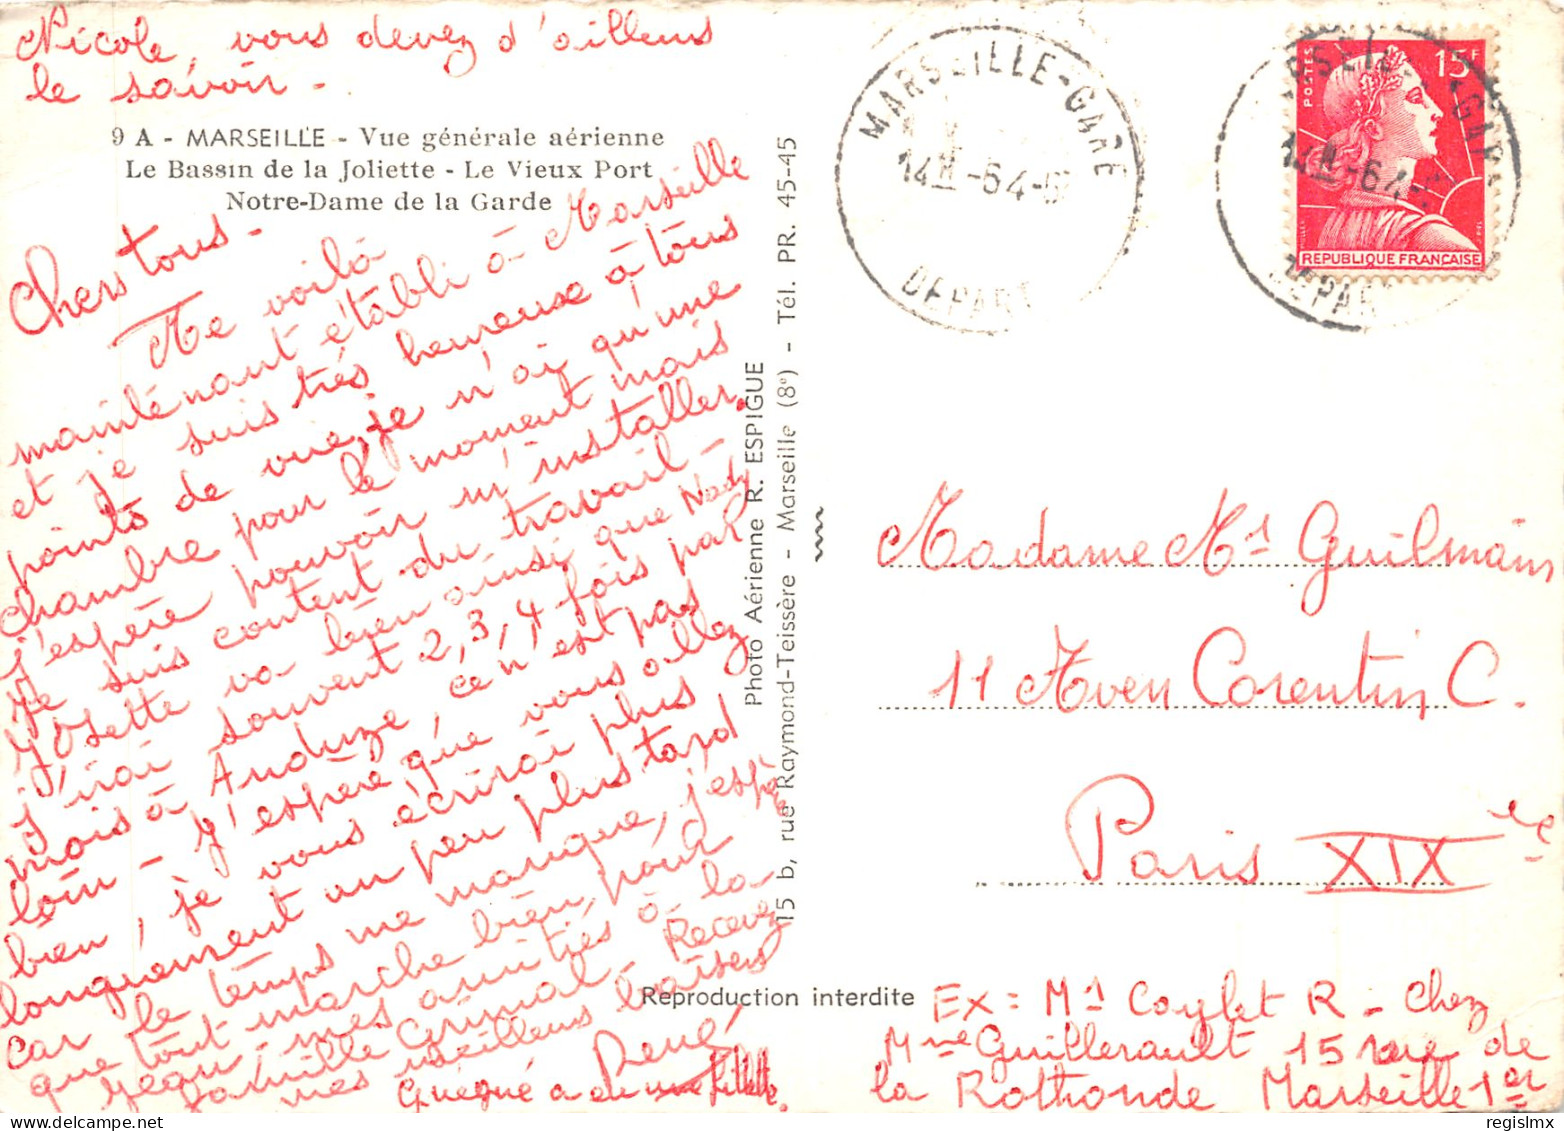 Nicole, vous devez d'ailleurs
le savoir -
9 A - MARSEILLE - Vue générale aérienne
Le Bassin de la Joliette - Le Vieux Port
Notre-Dame de la Garde
Chers tous -
Me voilà
maintenant établi à Marseille
et je suis très heureuse à tous
points de vue, je n'ai qu'une
chambre pour le moment mais
j'espère pouvoir m'installer.
Je suis content du travail -
Josette va bien ainsi que Nady
j'irai souvent 2, 3, 4 fois par
mois à Anduze ce n'est pas
loin - J'espère que vous allez
bien, je vous écrirai plus
longuement un peu plus tard
car le temps me manque, j'espère
que tout marche bien pour
mes amitiés à la
famille Grimal. Recevez
mes meilleurs baisers
René
a de fillette.
Photo Aérienne R. ESPIGUE
15 b, rue Raymond-Teissère - Marseille (8e) - Tél. PR. 45-45
Reproduction interdite
MARSEILLE-GARE
DEPART
POSTES
15F
REPUBLIQUE FRANÇAISE
Madame Mr Guilmain
11 Aven Corentin C.
Paris XIXe
Ex = Mr Caylet R - Chez
Mme Guillerault 15 rue de
la Rothonde Marseille 1er
regislmx